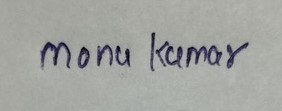 Monu Kumar